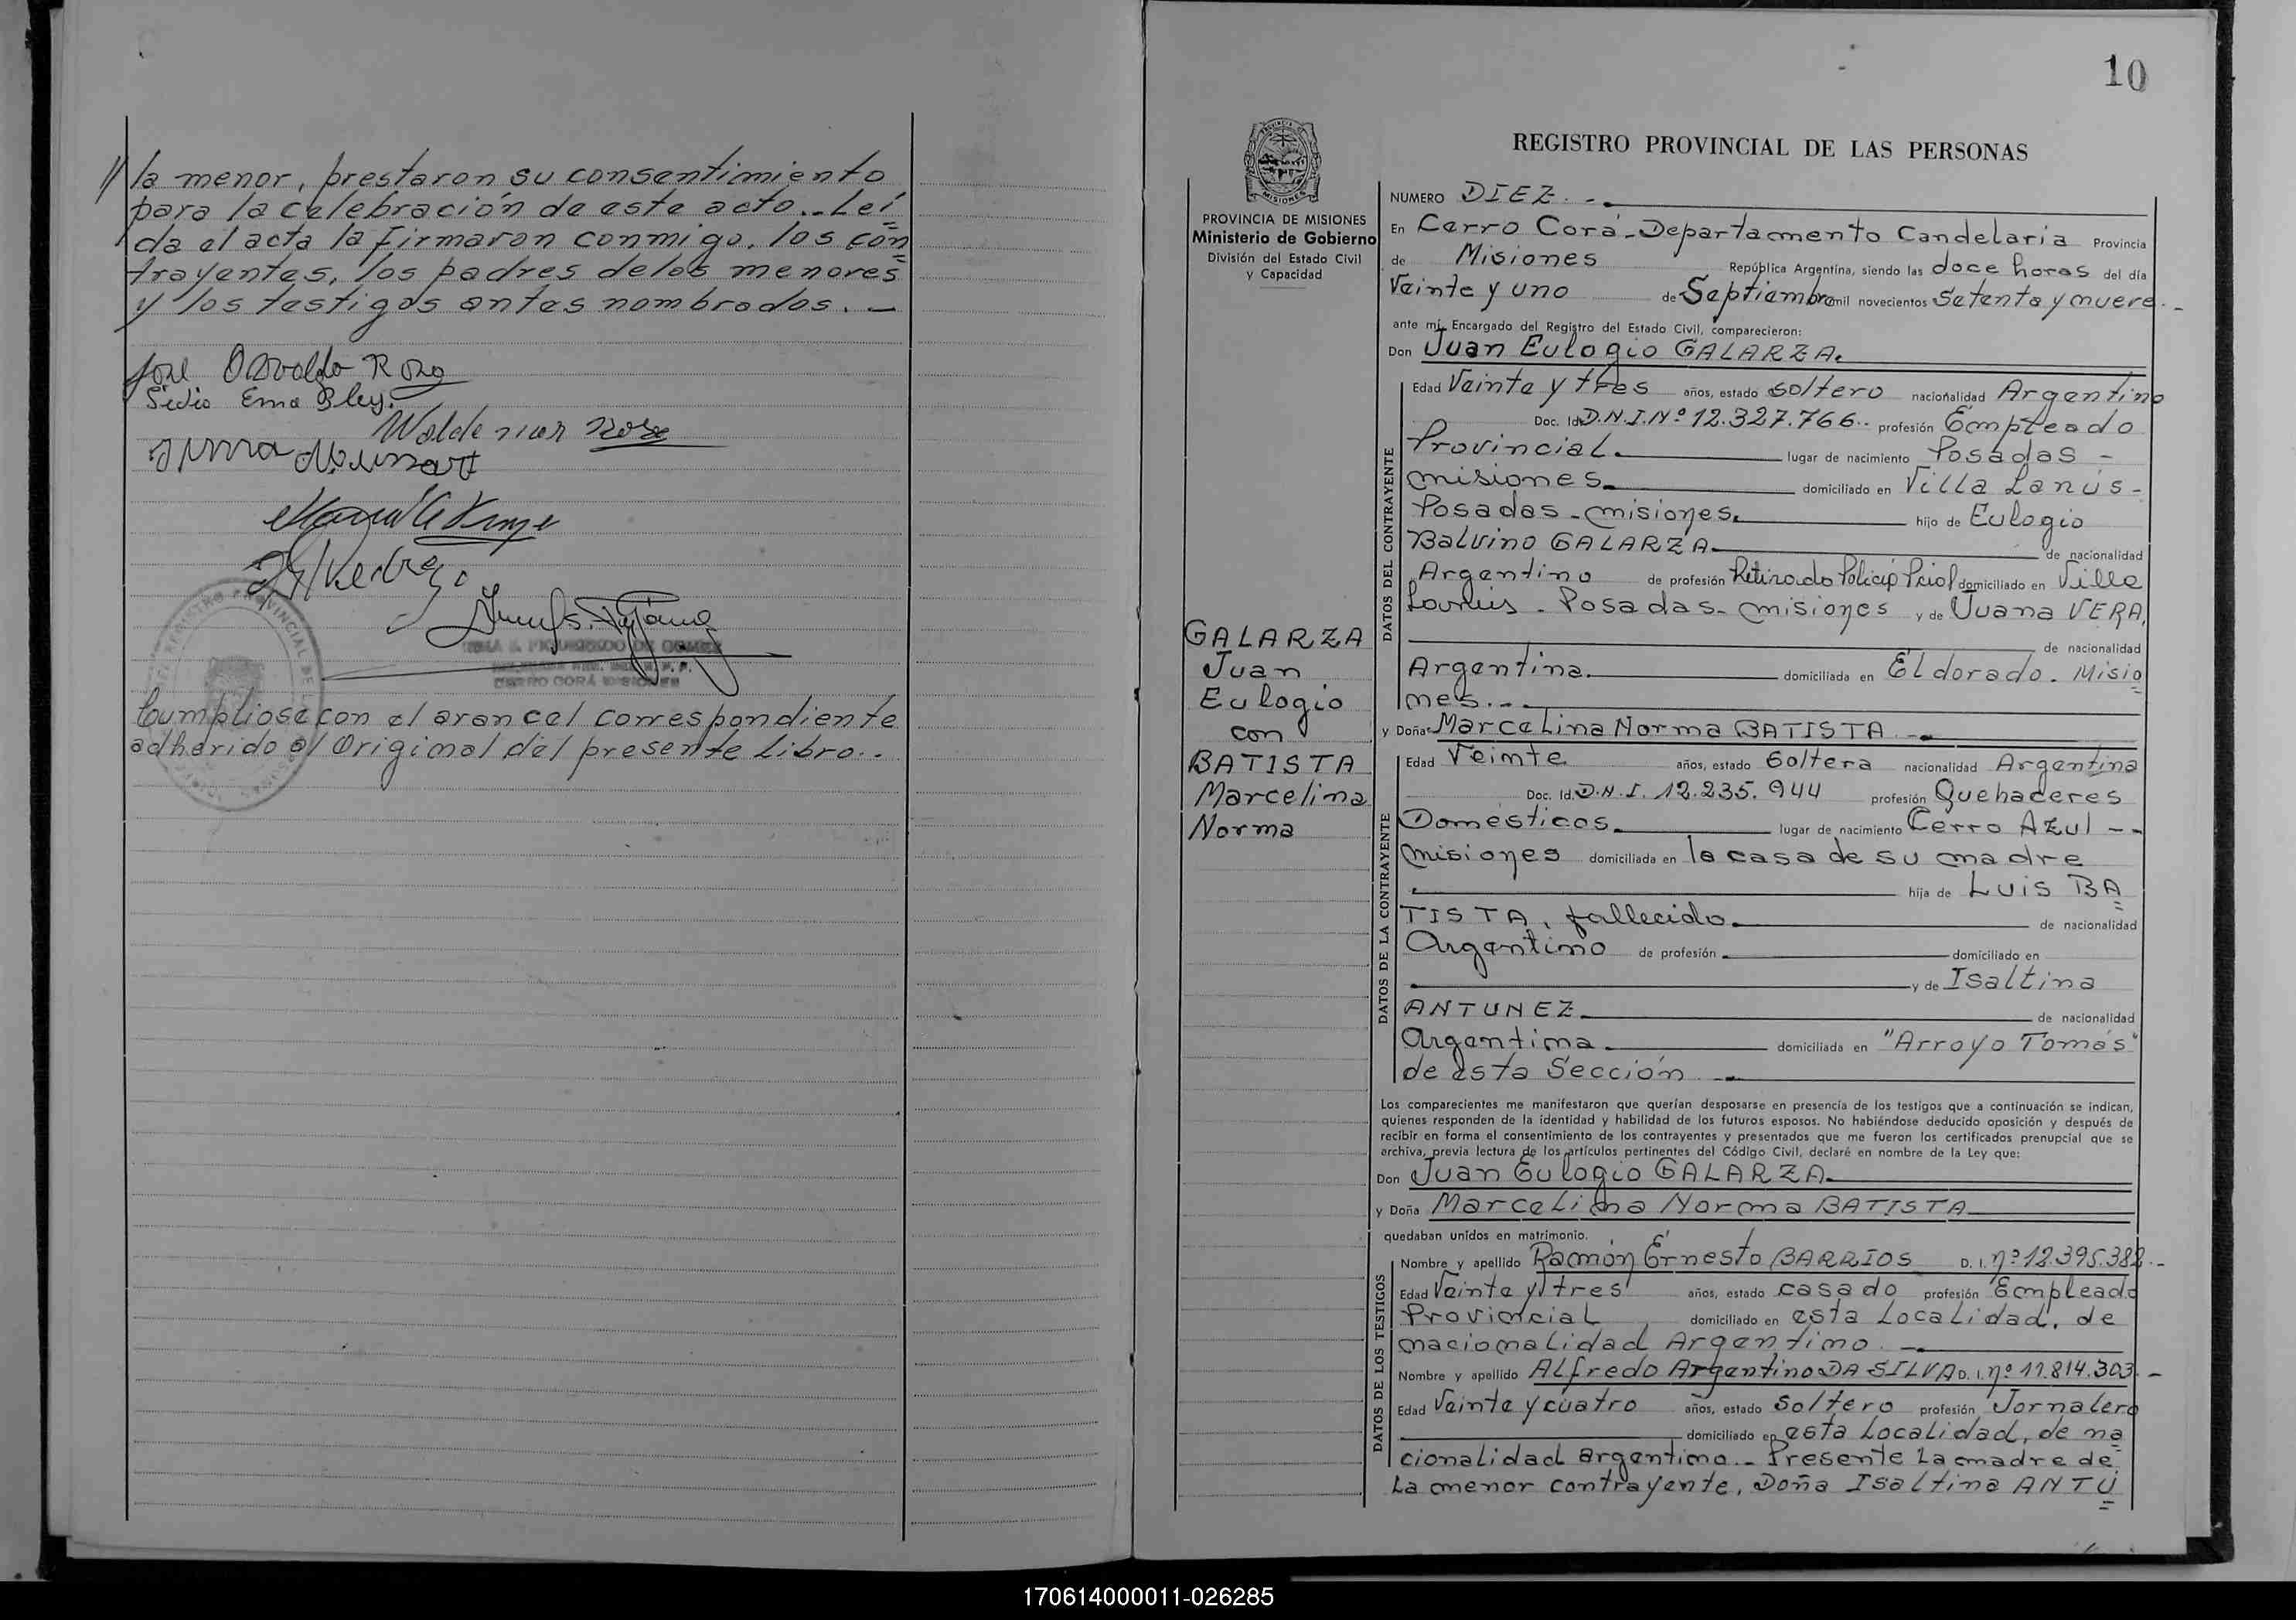 // la menor, prestaron su consentimiento
para la celebración de este acto.. Leí
da el acta la firmaron conmigo, los con
trayentes, los padres de los menores
y los testigos antes nombrados. —
José Osvaldo Rosa
Ema Bley.
Waldemar Rose
CERRO CORÁ MISIONES
Cumpliose con el arancel correspondiente
adherido al Original del presente Libro..
10
REGISTRO PROVINCIAL DE LAS PERSONAS
PROVINCIA DE MISIONES
Ministerio de Gobierno
División del Estado Civil
y Capacidad
GALARZA
Juan
Eulogio
con
BATISTA
Marcelina
Norma
NUMERO DIEZ. -.
En Cerro Corá - Departamento Candelaria Provincia
de Misiones República Argentina, siendo las doce horas del día
Veinte y uno de Septiembre mil novecientos Setenta y nueve. -
ante mí, Encargado del Registro del Estado Civil, comparecieron:
Don Juan Eulogio GALARZA.
DATOS DEL CONTRAYENTE
Edad Veinte y tres años, estado soltero nacionalidad Argentino
Doc. Id. D.N.I. Nº 12.327.766.. profesión Empleado
Provincial. lugar de nacimiento Posadas -
misiones. domiciliado en Villa Lanús -
Posadas - misiones. hijo de Eulogio
Balvino GALARZA. de nacionalidad
Argentino de profesión Retirado Policía Pcial domiciliado en Villa
Lanús - Posadas - misiones y de Juana VERA,
de nacionalidad
Argentina. domiciliada en Eldorado. Misio
nes. -.
y Doña Marcelina Norma BATISTA. -.
DATOS DE LA CONTRAYENTE
Edad Veinte años, estado Soltera nacionalidad Argentina
Doc. Id. D.N.I. 12.235.944 profesión Quehaceres
Domésticos. lugar de nacimiento Cerro Azul --
misiones domiciliada en la casa de su madre
hija de Luis BA
TISTA, fallecido. de nacionalidad
Argentino de profesión domiciliado en
y de Isaltina
ANTUNEZ. de nacionalidad
Argentina. domiciliada en "Arroyo Tomás"
de esta Sección. -.
Los comparecientes me manifestaron que querían desposarse en presencia de los testigos que a continuación se indican,
quienes responden de la identidad y habilidad de los futuros esposos. No habiéndose deducido oposición y después de
recibir en forma el consentimiento de los contrayentes y presentados que me fueron los certificados prenupcial que se
archiva, previa lectura de los artículos pertinentes del Código Civil, declaré en nombre de la Ley que:
Don Juan Eulogio GALARZA.
y Doña Marcelina Norma BATISTA
quedaban unidos en matrimonio.
DATOS DE LOS TESTIGOS
Nombre y apellido Ramón Ernesto BARRIOS D. I. nº 12.395.382.-
Edad Veinte y tres años, estado casado profesión Empleado
Provincial domiciliado en esta Localidad, de
nacionalidad Argentino. -.
Nombre y apellido Alfredo Argentino DA SILVA D. I. nº 11.814.303. -
Edad Veinte y cuatro años, estado Soltero profesión Jornalero
domiciliado en esta Localidad, de na
cionalidad argentino. - Presente La madre de
La menor contrayente, Doña Isaltina ANTU
170614000011-026285